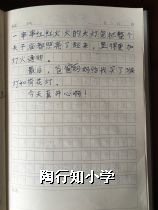 一串串红红火火的大灯笼把整个
夫子庙都照亮了起来,显得更加
灯火通明。
最后,爸爸妈妈给我买了猴
灯和荷花灯。
今天真开心啊!
陶行知小学